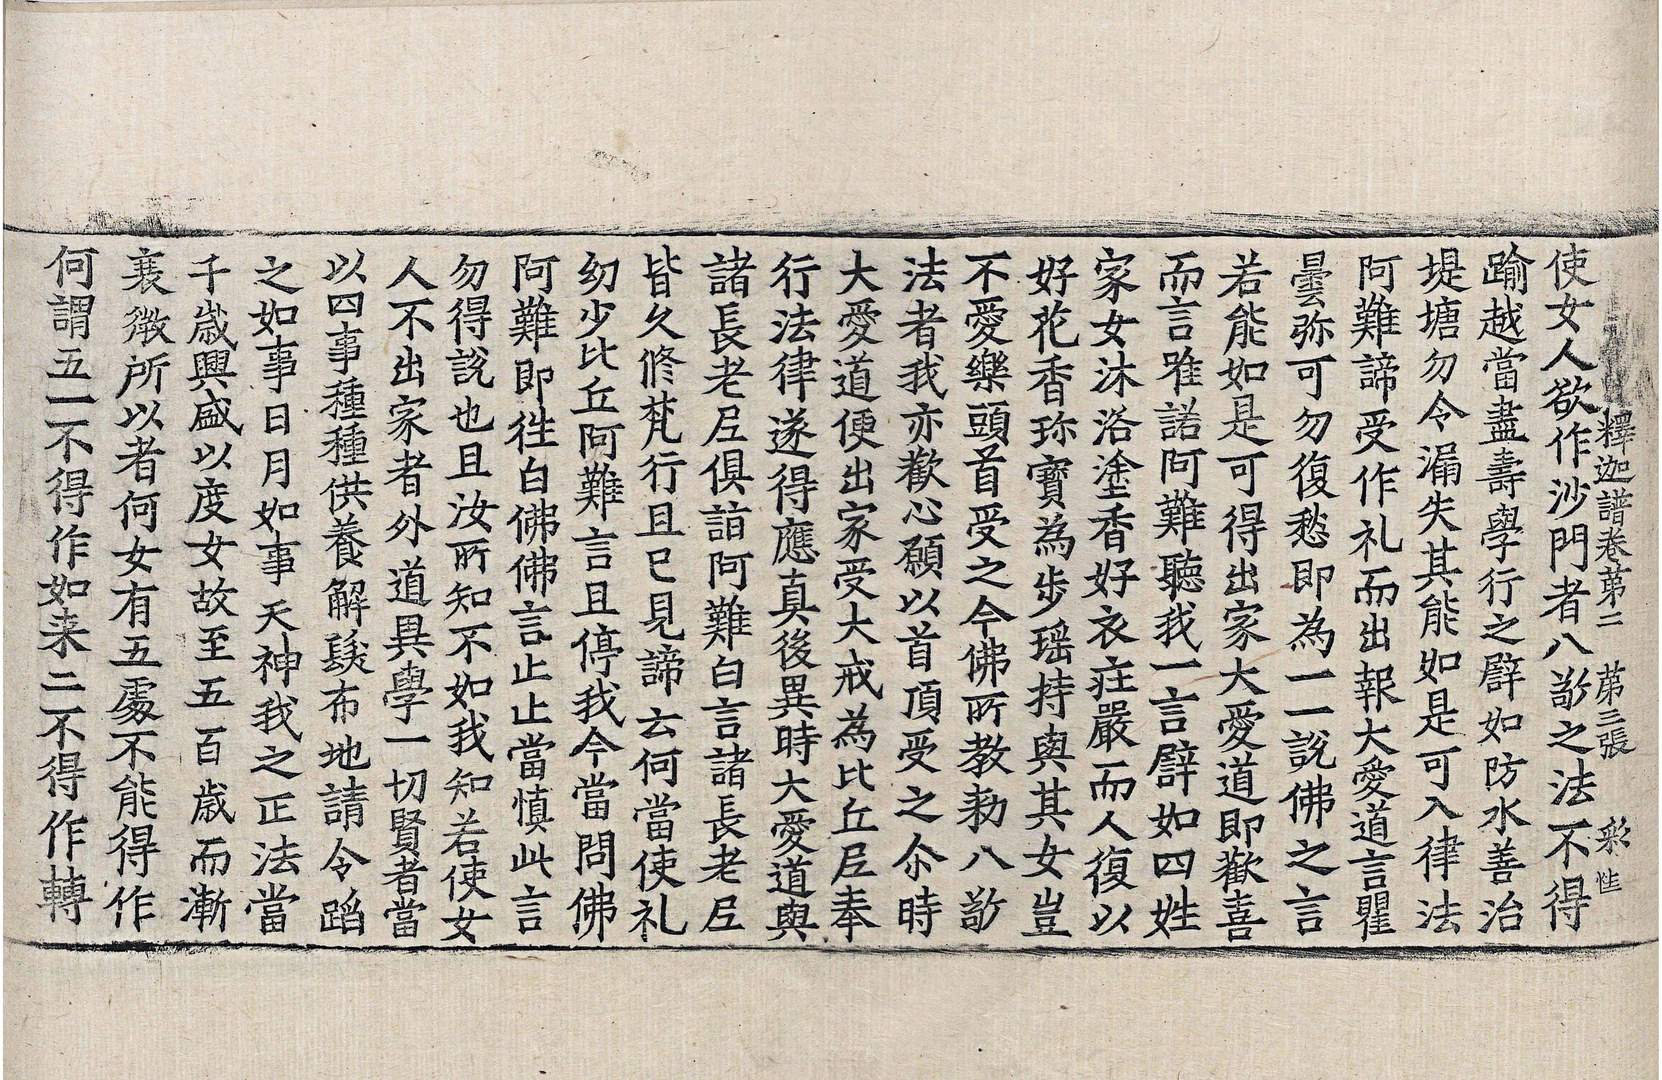 釋迦譜卷第二 第三張 彩
使女人欲作沙門者八敬之法不得
踰越當盡壽學行之譬如防水善治
堤塘勿令漏失其能如是可入律法
阿難諦受作礼而出報大愛道言瞿
曇弥可勿復愁即為一一說佛之言
若能如是可得出家大愛道即歡喜
而言唯諾阿難聽我一言譬如四姓
家女沐浴塗香好衣莊嚴而人復以
好花香珎寶為步瑶持與其女豈
不愛樂頭首受之今佛所教勑八敬
法者我亦歡心願以首頂受之尒時
大愛道便出家受大戒為比丘尼奉
行法律遂得應真後異時大愛道與
諸長老尼俱詣阿難白言諸長老尼
皆久修梵行且已見諦云何當使礼
幼少比丘阿難言且停我今當問佛
阿難即往白佛佛言止止當慎此言
勿得說也且汝所知不如我知若使女
人不出家者外道異學一切賢者當
以四事種種供養解髮布地請令蹈
之如事日月如事天神我之正法當
千歲興盛以度女故至五百歲而漸
衰微所以者何女有五處不能得作
何謂五一不得作如来二不得作轉